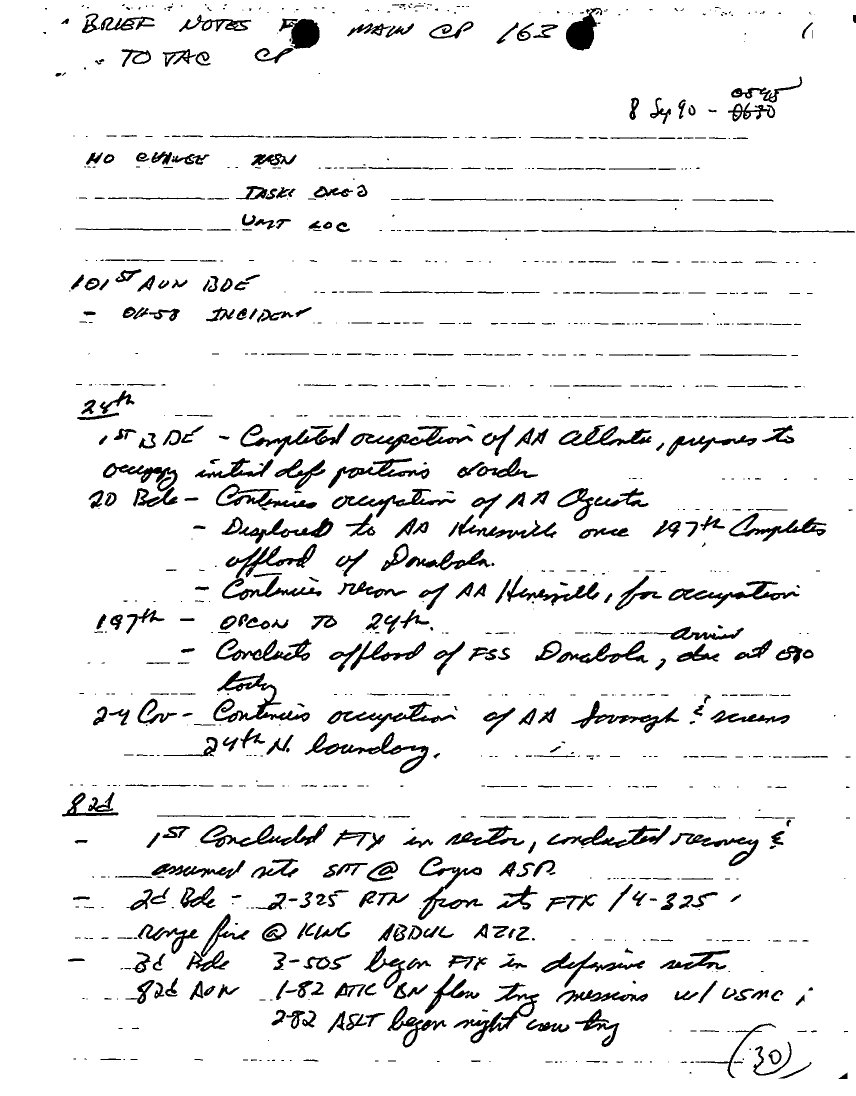 BRIEF NOTES F MAIN CP 163
- TO TAC CP
8 Sep 90 - 0545
0630
NO CHANGE MSN
TASK ORG
UNIT LOC
101ST AVN BDE
- OH-58 INCIDENT
24th
1ST BDE - Completed occupation of AA Atlanta, prepares to
occupy initial def positions o/order
2D Bde - Continues occupation of AA Ogusta
- Displaced to AA Hinesville once 197th Completes
offload of Denebola.
- Continues recon of AA Hinesville, for occupation
197th - OPCON TO 24th.
- Conducts offload of FSS Denebola, due at
today
2-4 Cav - Continues occupation of AA Savanagh & screens
24th N. boundary.
82d
- 1ST Concluded FTX in sector, conducted recovery &
assumed site SPT @ Corps ASP.
- 2d Bde - 2-325 RTN from its FTX / 4-325
range fire @ KING ABDUL AZIZ.
- 3d Bde 3-505 began FTX in defensive sector
82d AVN 1-82 ATK BN flew tng missions w/ USMC ;
2-82 ASLT began night crew tng
(30)